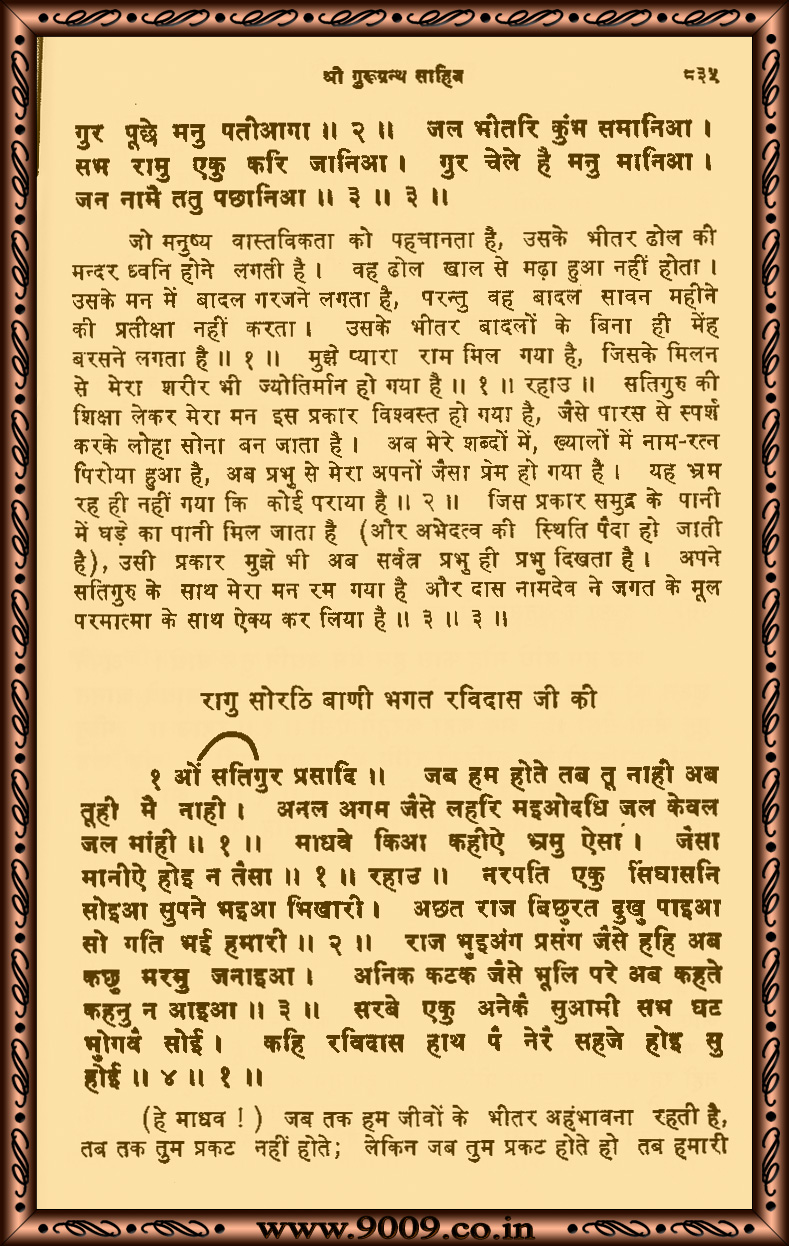 श्री गुरूग्रन्थ साहिब ८३५
गुर पूछे मनु पतीआगा ॥ २ ॥ जल भीतरि कुंभ समानिआ ।
सभ रामु एकु करि जानिआ । गुर चेले है मनु मानिआ ।
जन नामै ततु पछानिआ ॥ ३ ॥ ३ ॥
जो मनुष्य वास्तविकता को पहचानता है, उसके भीतर ढोल की
मन्दर ध्वनि होने लगती है । वह ढोल खाल से मढ़ा हुआ नहीं होता ।
उसके मन में बादल गरजने लगता है, परन्तु वह बादल सावन महीने
की प्रतीक्षा नहीं करता । उसके भीतर बादलों के बिना ही मेंह
बरसने लगता है ॥ १ ॥ मुझे प्यारा राम मिल गया है, जिसके मिलन
से मेरा शरीर भी ज्योतिर्मान हो गया है ॥ १ ॥ रहाउ ॥ सतिगुरु की
शिक्षा लेकर मेरा मन इस प्रकार विश्वस्त हो गया है, जैसे पारस से स्पर्श
करके लोहा सोना बन जाता है । अब मेरे शब्दों में, ख्यालों में नाम-रत्न
पिरोया हुआ है, अब प्रभु से मेरा अपनों जैसा प्रेम हो गया है । यह भ्रम
रह ही नहीं गया कि कोई पराया है ॥ २ ॥ जिस प्रकार समुद्र के पानी
में घड़े का पानी मिल जाता है (और अभेदत्व की स्थिति पैदा हो जाती
है), उसी प्रकार मुझे भी अब सर्वत्र प्रभु ही प्रभु दिखता है । अपने
सतिगुरु के साथ मेरा मन रम गया है और दास नामदेव ने जगत के मूल
परमात्मा के साथ ऐक्य कर लिया है ॥ ३ ॥ ३ ॥
रागु सोरठि बाणी भगत रविदास जी की
१ ओं सतिगुर प्रसादि ॥ जब हम होते तब तू नाही अब
तूही मै नाही । अनल अगम जैसे लहरि मइओदधि जल केवल
जल मांही ॥ १ ॥ माधवे किआ कहीऐ भ्रमु ऐसा । जैसा
मानीऐ होइ न तैसा ॥ १ ॥ रहाउ ॥ नरपति एकु सिंघासनि
सोइआ सुपने भइआ भिखारी । अछत राज बिछुरत दुखु पाइआ
सो गति भई हमारी ॥ २ ॥ राज भुइअंग प्रसंग जैसे हहि अब
कछु मरमु जनाइआ । अनिक कटक जैसे भूलि परे अब कहते
कहनु न आइआ ॥ ३ ॥ सरबे एकु अनेकै सुआमी सभ घट
भुोगवै सोई । कहि रविदास हाथ पै नेरै सहजे होइ सु
होई ॥ ४ ॥ १ ॥
(हे माधव ! ) जब तक हम जीवों के भीतर अहंभावना रहती है,
तब तक तुम प्रकट नहीं होते; लेकिन जब तुम प्रकट होते हो तब हमारी
www.9009.co.in